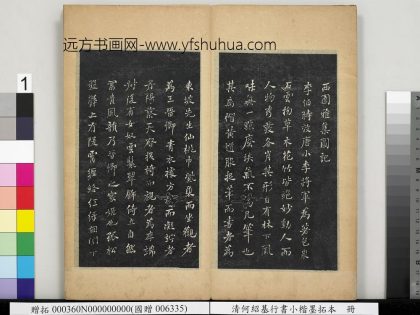 远方书画网-www.yfshuhua.com
西園雅集圖記
李伯時效唐小李將軍為著色泉
石雲物草木花竹皆絕妙動人而
人物秀發各肖其形自有林下風
味無一點塵埃氣不為凡筆也
其烏帽黃道服捉筆而書者為
東坡先生仙桃巾紫裘而坐觀者
為王晉卿青衣據方
而凝竚者
後有女奴雲鬟翠飾侍立自然
富貴風韻乃晉卿之家姬也孤松
盤鬱上有凌霄纏絡紅綠相間下
1
贈拓 000360N000000000(國贈 006335)
清何紹基行書小楷墨拓本 冊